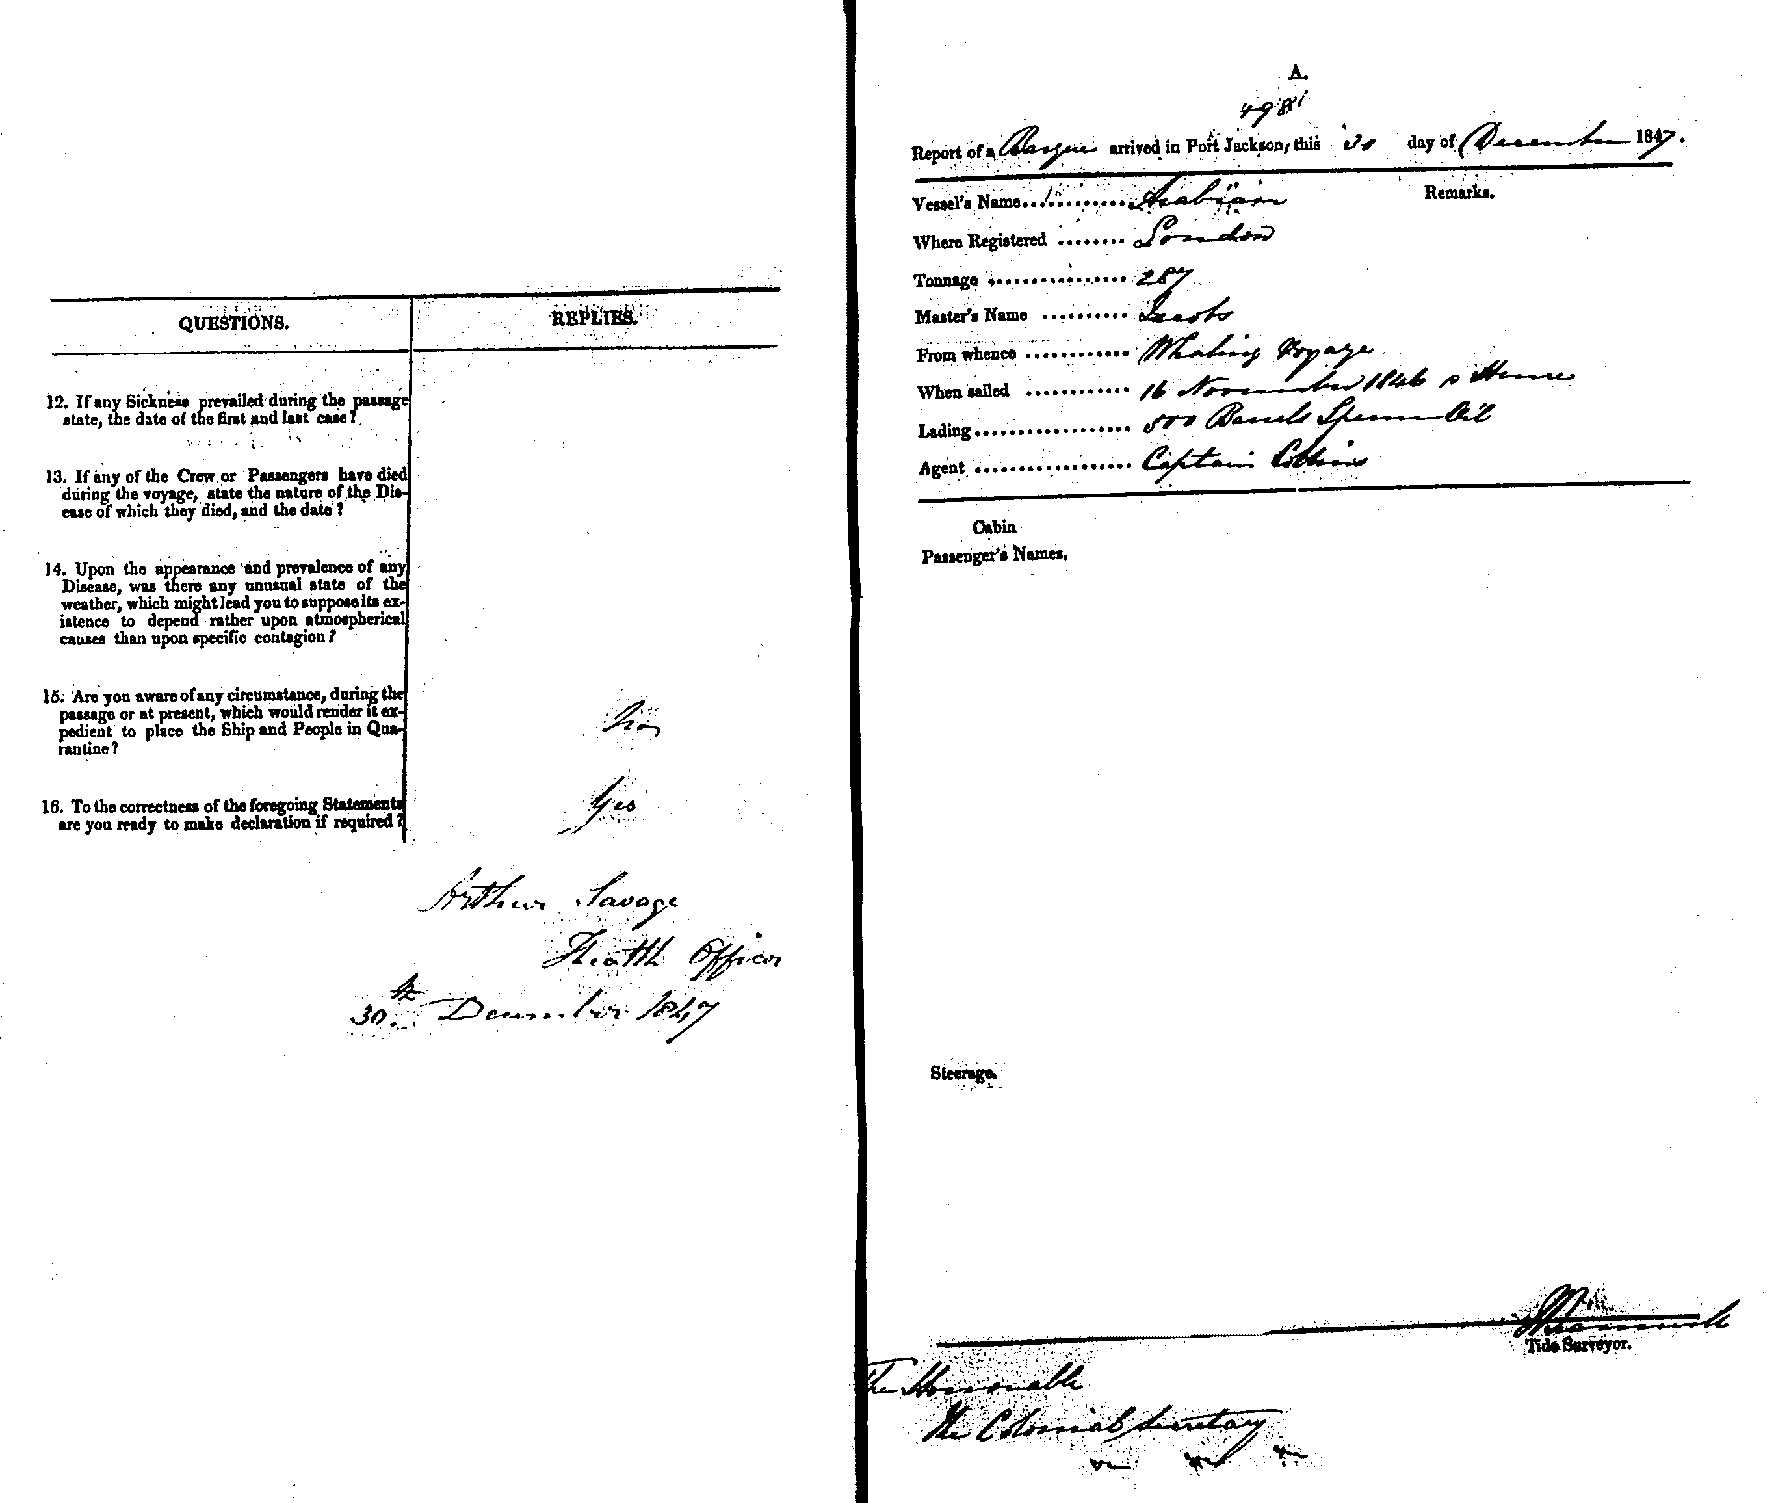 QUESTIONS.
REPLIES.
12. If any Sickness prevailed during the passage
state, the date of the first and last case?
13. If any of the Crew or Passengers have died
during the voyage, state the nature of the Dis-
ease of which they died, and the date?
14. Upon the appearance and prevalence of any
Disease, was there any unusual state of the
weather, which might lead you to suppose its ex-
istence to depend rather upon atmospherical
causes than upon specific contagion?
15. Are you aware of any circumstance, during the
passage or at present, which would render it ex-
pedient to place the Ship and People in Qua-
rantine?
No
16. To the correctness of the foregoing Statements
are you ready to make declaration if required?
Yes
Arthur Savage
Health Officer
30th December 1847
A.
498
Report of a Barque arrived in Port Jackson, this 30 day of December 1847.
Remarks.
Vessel's Name Arabian
Where Registered London
Tonnage 287
Master's Name Jacobs
From whence Whaling Voyage
When sailed 16 November 1846 Hence
Lading 500 Barrels Sperm Oil
Agent Captain Collins
Cabin
Passenger's Names.
Steerage.
Tide Surveyor.
The Honorable
The Colonial Secretary